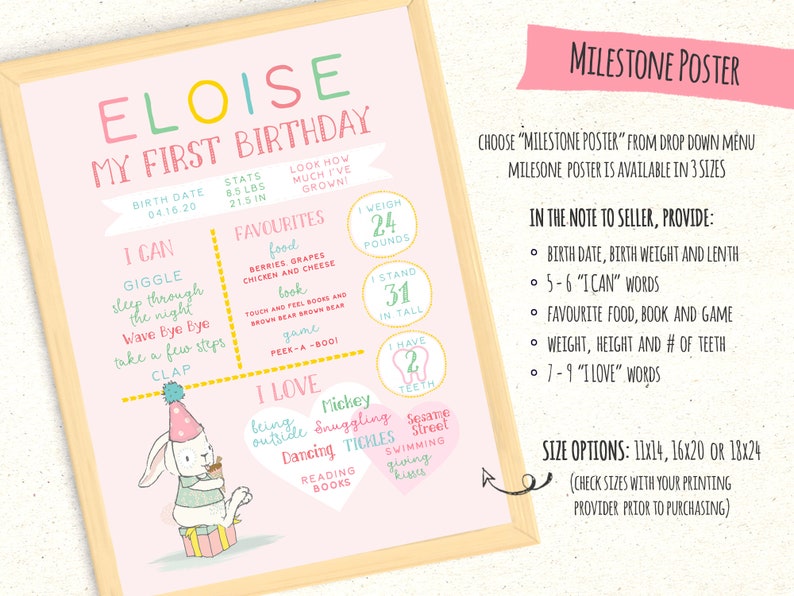 ELOISE
MY FIRST BIRTHDAY
BIRTH DATE
04.16.20
STATS
8.5 LBS
21.5 IN
LOOK HOW
MUCH I'VE
GROWN!
I CAN
GIGGLE
sleep through
the night
Wave Bye Bye
take a few steps
CLAP
FAVOURITES
food
BERRIES, GRAPES
CHICKEN AND CHEESE
book
TOUCH AND FEEL BOOKS AND
BROWN BEAR BROWN BEAR
game
PEEK-A-BOO!
I WEIGH
24
POUNDS
I STAND
31
IN TALL
I HAVE
2
TEETH
I LOVE
being
outside
Mickey
Snuggling
Sesame
Street
Dancing
TICKLES
SWIMMING
READING
BOOKS
giving
kisses
MILESTONE POSTER
CHOOSE "MILESTONE POSTER" FROM DROP DOWN MENU
MILESONE POSTER IS AVAILABLE IN 3 SIZES
IN THE NOTE TO SELLER, PROVIDE:
BIRTH DATE, BIRTH WEIGHT AND LENTH
5 - 6 "I CAN" WORDS
FAVOURITE FOOD, BOOK AND GAME
WEIGHT, HEIGHT AND # OF TEETH
7 - 9 "I LOVE" WORDS
SIZE OPTIONS: 11x14, 16x20 OR 18x24
(CHECK SIZES WITH YOUR PRINTING
PROVIDER PRIOR TO PURCHASING)